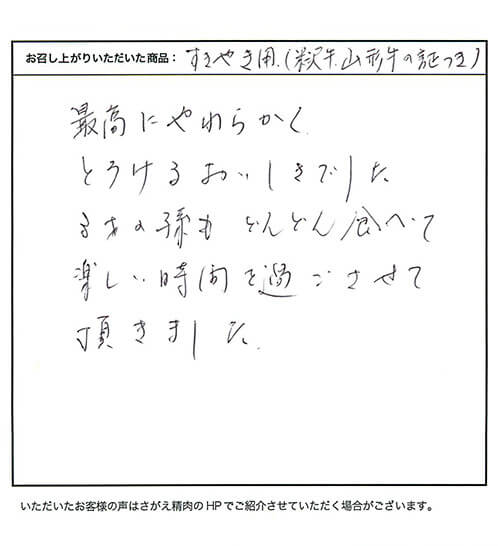 お召し上がりいただいた商品： すきやき用（米沢牛.山形牛の証つき）
最高にやわらかく
とろけるおいしさでした
3才の孫も どんどん食べて
楽しい時間を過ごさせて
頂きました.
いただいたお客様の声はさがえ精肉のHPでご紹介させていただく場合がございます。